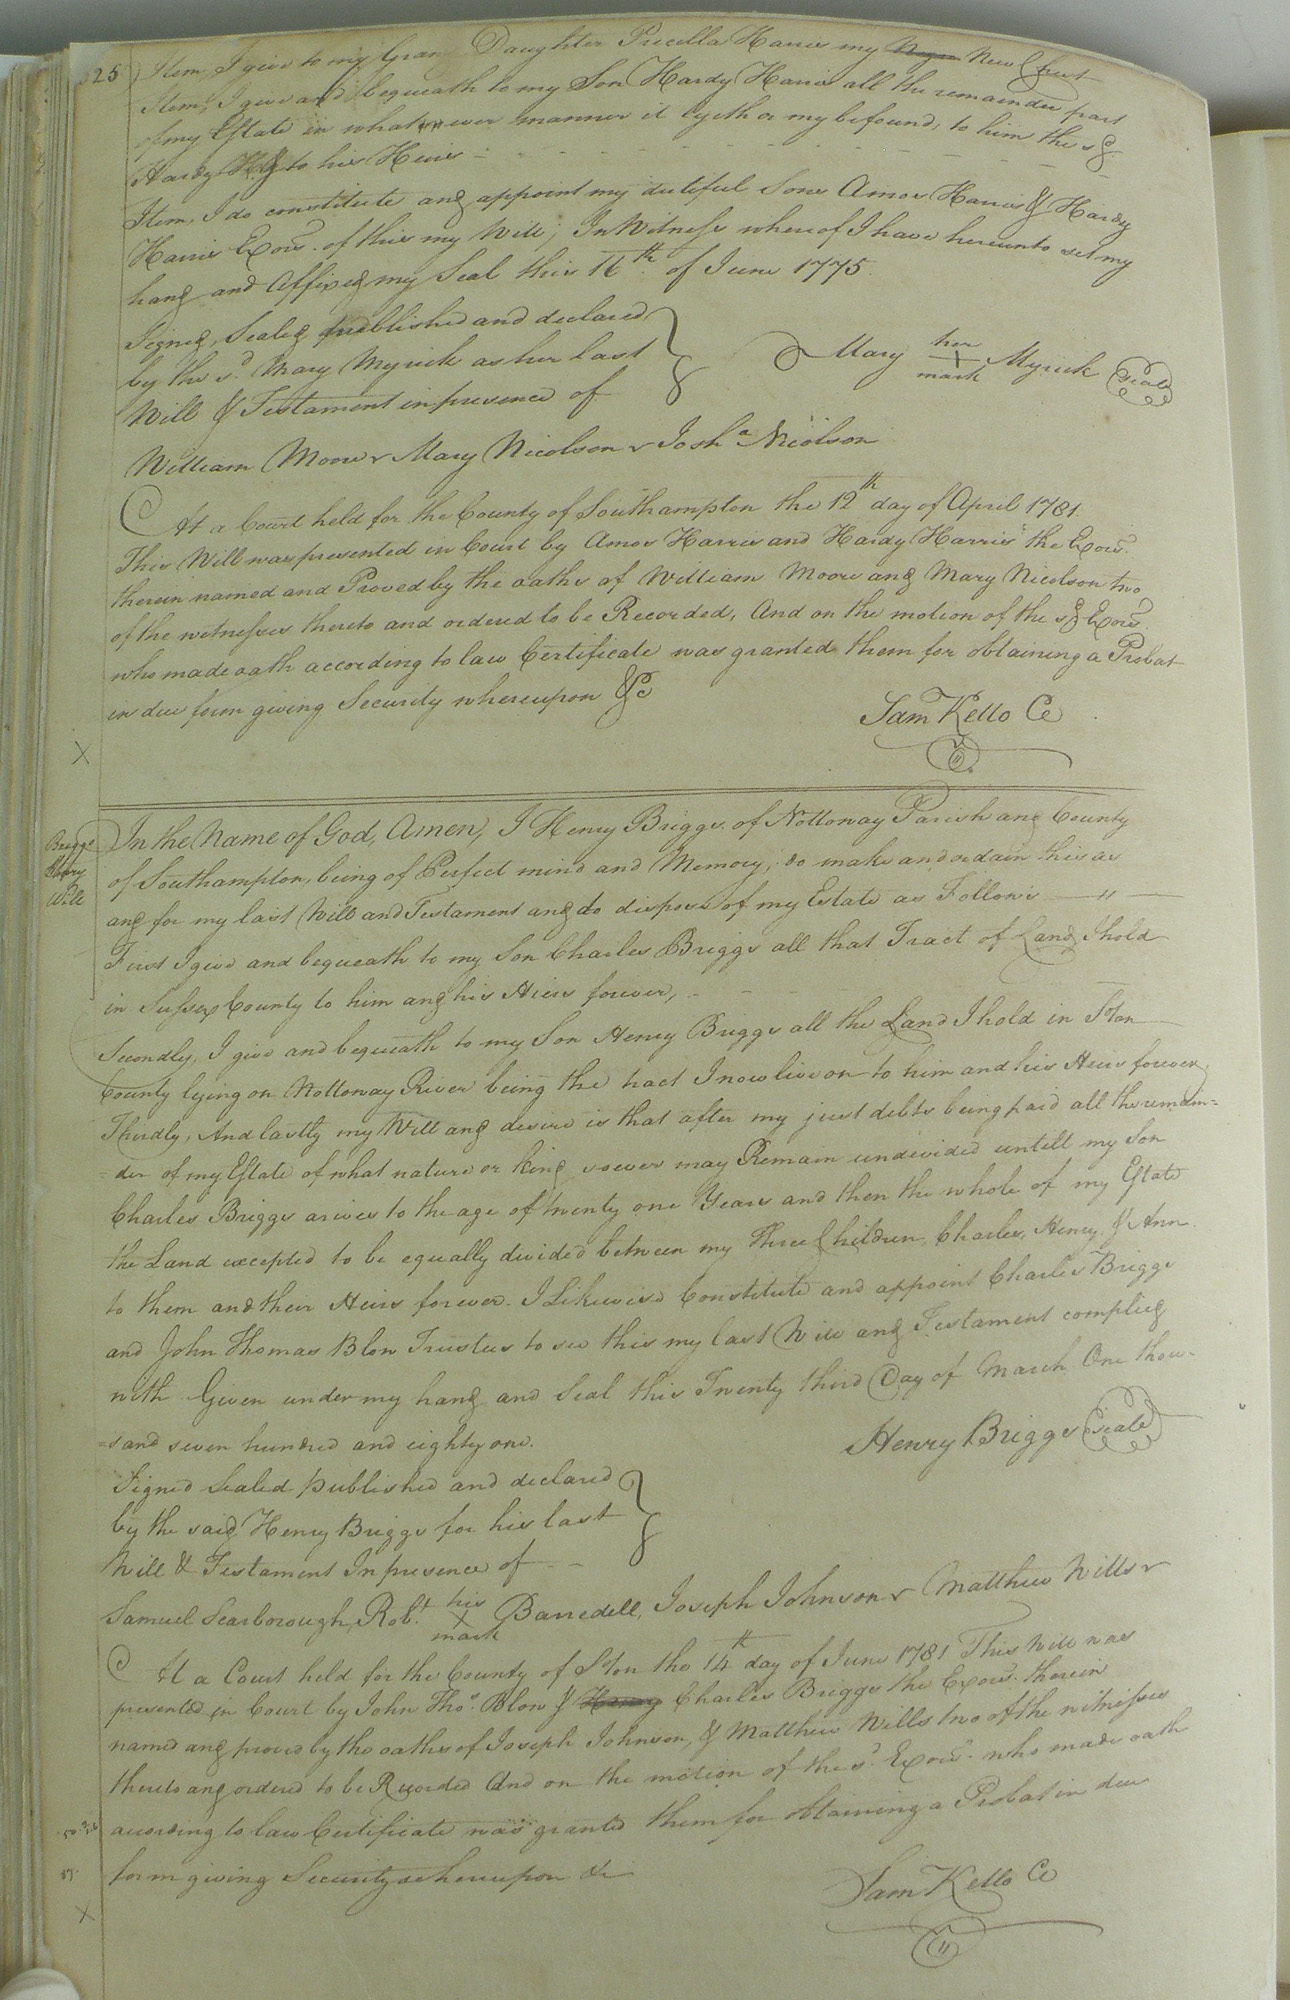 325
Item, I give to my Gran Daughter Precilla Harris my Negro New Chest
Item, I give and bequeath to my Son Hardy Harris all the remainder part
of my Estate in whatsoever manner it lyeth or my be found, to him the sd
Hardy H. & to his Heirs
Item, I do constitute and appoint my dutiful Sons Amos Harris & Hardy
Harris Exors. of this my Will; In Witness whereof I have hereunto set my
hand and Affixed my Seal this 16th of June 1775.
Signed, Sealed published and declared
by the sd. Mary Myrick as her last
Will & Testament in presence of
Mary her mark Myrick Seal
William Moore Mary Nicolson Josha Nicolson
At a Court held for the County of Southampton the 12th day of April 1781.
This Will was presented in Court by Amos Harris and Hardy Harris the Exors.
therein named and Proved by the oaths of William Moore and Mary Nicolson two
of the witnesses thereto and ordered to be Recorded, And on the motion of the sd Exors.
who made oath according to law Certificate was granted them for obtaining a Probat
in due form giving Security whereupon &c
Sam Kello Ce
X
Briggs
Henry
Will
In the Name of God, Amen, I Henry Briggs of Nottoway Parish and County
of Southampton, being of Perfect mind and Memory, do make and ordain this as
and for my last Will and Testament and to dispose of my Estate as Follows
First I give and bequeath to my Son Charles Briggs all that Tract of Land I hold
in Sussex County to him and his Heirs forever,
Secondly, I give and bequeath to my Son Henry Briggs all the Land I hold in S'ton
County lying on Nottoway River being the tract I now live on to him and his Heirs forever,
Thirdly, And lastly my Will and desire is that after my just debts being paid all the remain=
=der of my Estate of what nature or kind soever may Remain undivided untill my Son
Charles Briggs arives to the age of twenty one Years and then the whole of my Estate
the Land excepted to be equally divided between my Three Children, Charles, Henry & Ann
to them and their Heirs forever. I Likewise Constitute and appoint Charles Briggs
and John Thomas Blow Trustees to see this my last Will and Testament complied
with Given under my hand and Seal this Twenty third Day of March One thou=
=sand seven hundred and eighty one.
Henry Briggs Seal
Signed Sealed published and declared
by the said Henry Briggs for his last
Will & Testament In presence of
Samuel Scarborough, Robt his mark Barredell, Joseph Johnson Matthew Wills
At a Court held for the County of S'ton the 14th day of June 1781 This Will was
presented in Court by John Thos. Blow & Henry Charles Briggs the Exors. therein
named and proved by the oaths of Joseph Johnson, & Matthew Wills two of the witnesses
thereto and ordered to be Recorded And on the motion of the sd. Exors. who made oath
according to law Certificate was granted them for obtaining a Probat in due
form giving Security whereupon &c
Sam Kello Ce
X